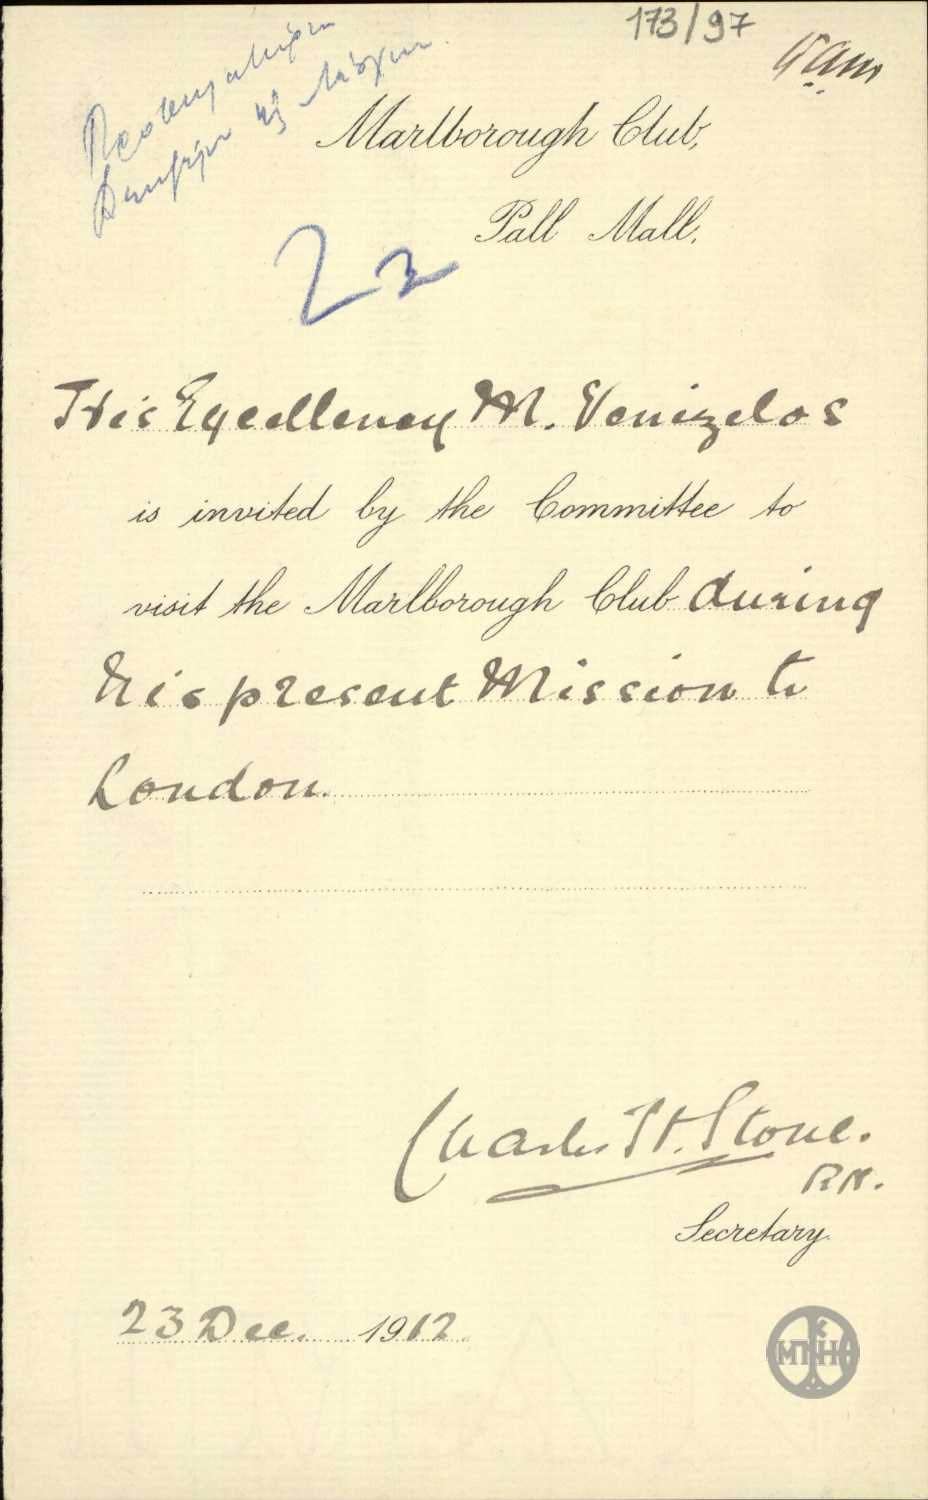 173/97
Marlborough Club,
Pall Mall.
22
His Excellency M. Venizelos
is invited by the Committee to
visit the Marlborough Club during
his present Mission to
London.
Charles H. Stone.
R.N.
Secretary.
23 Dec. 1912.
ΜΠΚΗ